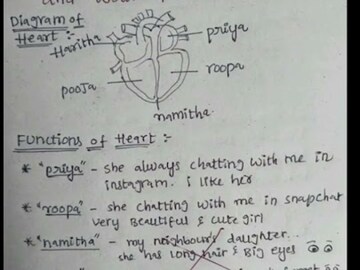 Diagram of
Heart :-
Haritha
priya
roopa
pooja
namitha
Functions of Heart :-
* "priya" - she always chatting with me in
instagram. i like her
* "roopa" - she chatting with me in snapchat
very Beautiful & cute girl
* "namitha" - my neighbour's daughter...
she "has long hair & Big eyes